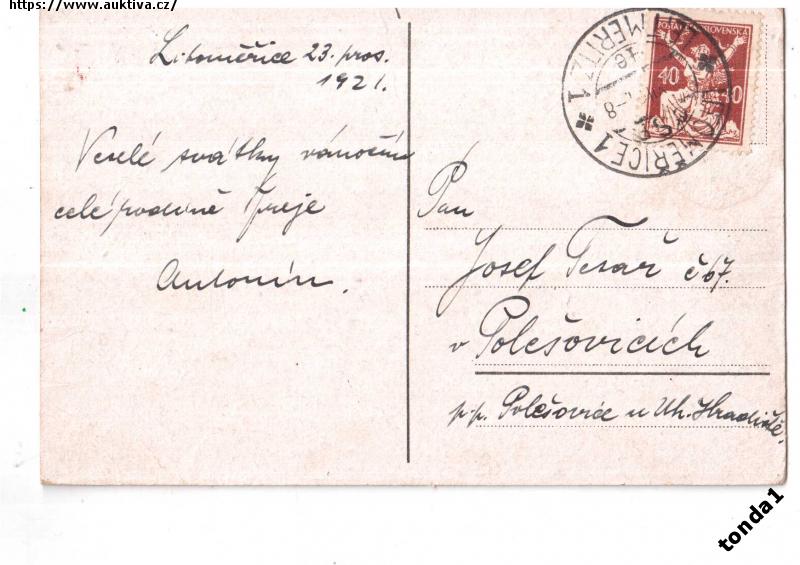 https://www.auktiva.cz/
Litoměřice 23. pros.
1921.
Veselé svátky vánoční
celé rodině přeje
Antonín.
POŠTA ČESKOSLOVENSKÁ
40 40
LITOMĚŘICE 1
LEITMERITZ 1
Pan
Josef Tesař č 67.
v Polešovicích
p.p. Polešovice u Uh. Hradiště.
tonda1